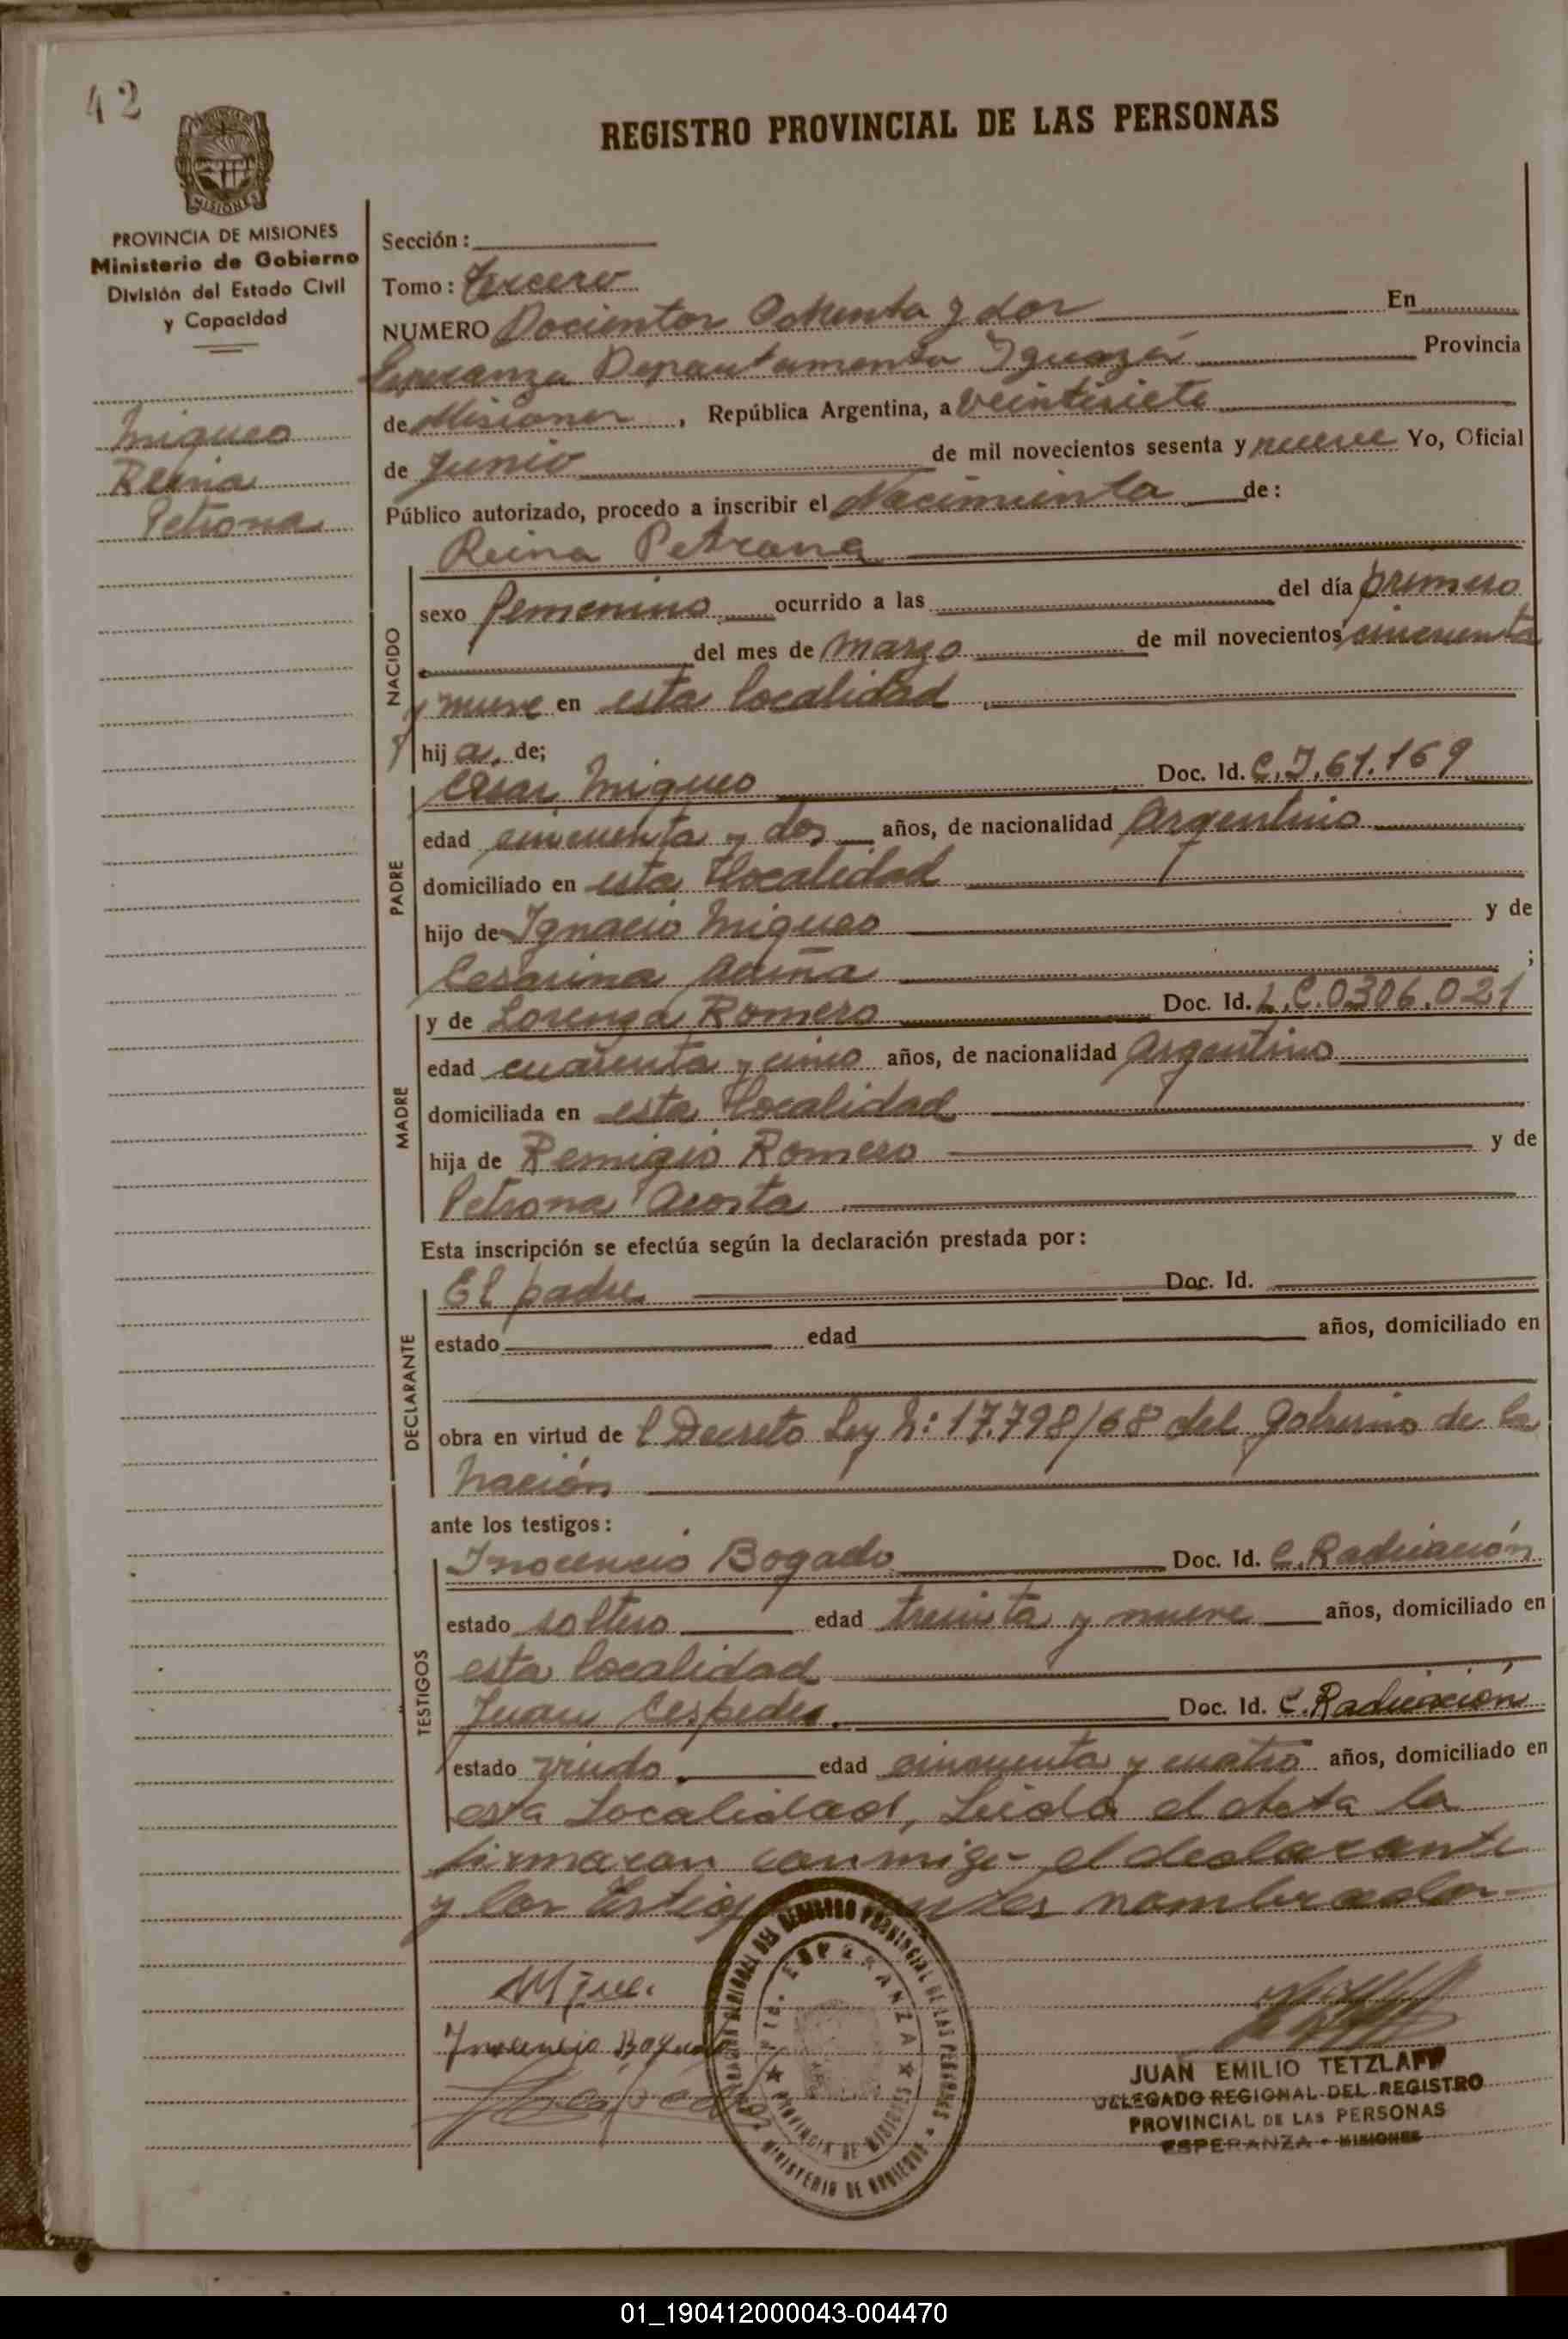 42
REGISTRO PROVINCIAL DE LAS PERSONAS
MISIONES
PROVINCIA DE MISIONES
Ministerio de Gobierno
División del Estado Civil
y Capacidad
Migueo
Reina
Petrona
Sección:
Tomo: Tercero
NUMERO Docientos Ochenta y dos En
Esperanza Departamento Iguazú Provincia
de Misiones, República Argentina, a veintisiete
de Junio de mil novecientos sesenta y nueve Yo, Oficial
Público autorizado, procedo a inscribir el Nacimiento de:
NACIDO
Reina Petrona
sexo femenino ocurrido a las del día primero
del mes de Marzo de mil novecientos cincuenta
y nueve en esta localidad
hija de;
PADRE
Cesar Migueo Doc. Id. C.I.61.169
edad cincuenta y dos años, de nacionalidad Argentino
domiciliado en esta localidad
hijo de Ignacio Migueo y de
Cesarina Acuña ;
MADRE
y de Lorenza Romero Doc. Id. L.C.0306.021
edad cuarenta y cinco años, de nacionalidad Argentino
domiciliada en esta localidad
hija de Remigio Romero y de
Petrona Acosta
Esta inscripción se efectúa según la declaración prestada por:
DECLARANTE
El padre Doc. Id.
estado edad años, domiciliado en
obra en virtud de l Decreto Ley N: 17.798/68 del Gobierno de la
Nación
ante los testigos:
TESTIGOS
Inocencio Bogado Doc. Id. C. Radicación
estado soltero edad treinta y nueve años, domiciliado en
esta localidad
Juan Cespedes Doc. Id. C. Radicación
estado viudo edad cincuenta y cuatro años, domiciliado en
esta Localidad, Leida el acta la
firmaron conmigo el declarante
y los nombrados
Inocencio Bogado
ESPERANZA
PROVINCIA DE MISIONES
MINISTERIO DE GOBIERNO
JUAN EMILIO TETZLAFF
DELEGADO REGIONAL DEL REGISTRO
PROVINCIAL DE LAS PERSONAS
ESPERANZA - MISIONES
01_190412000043-004470